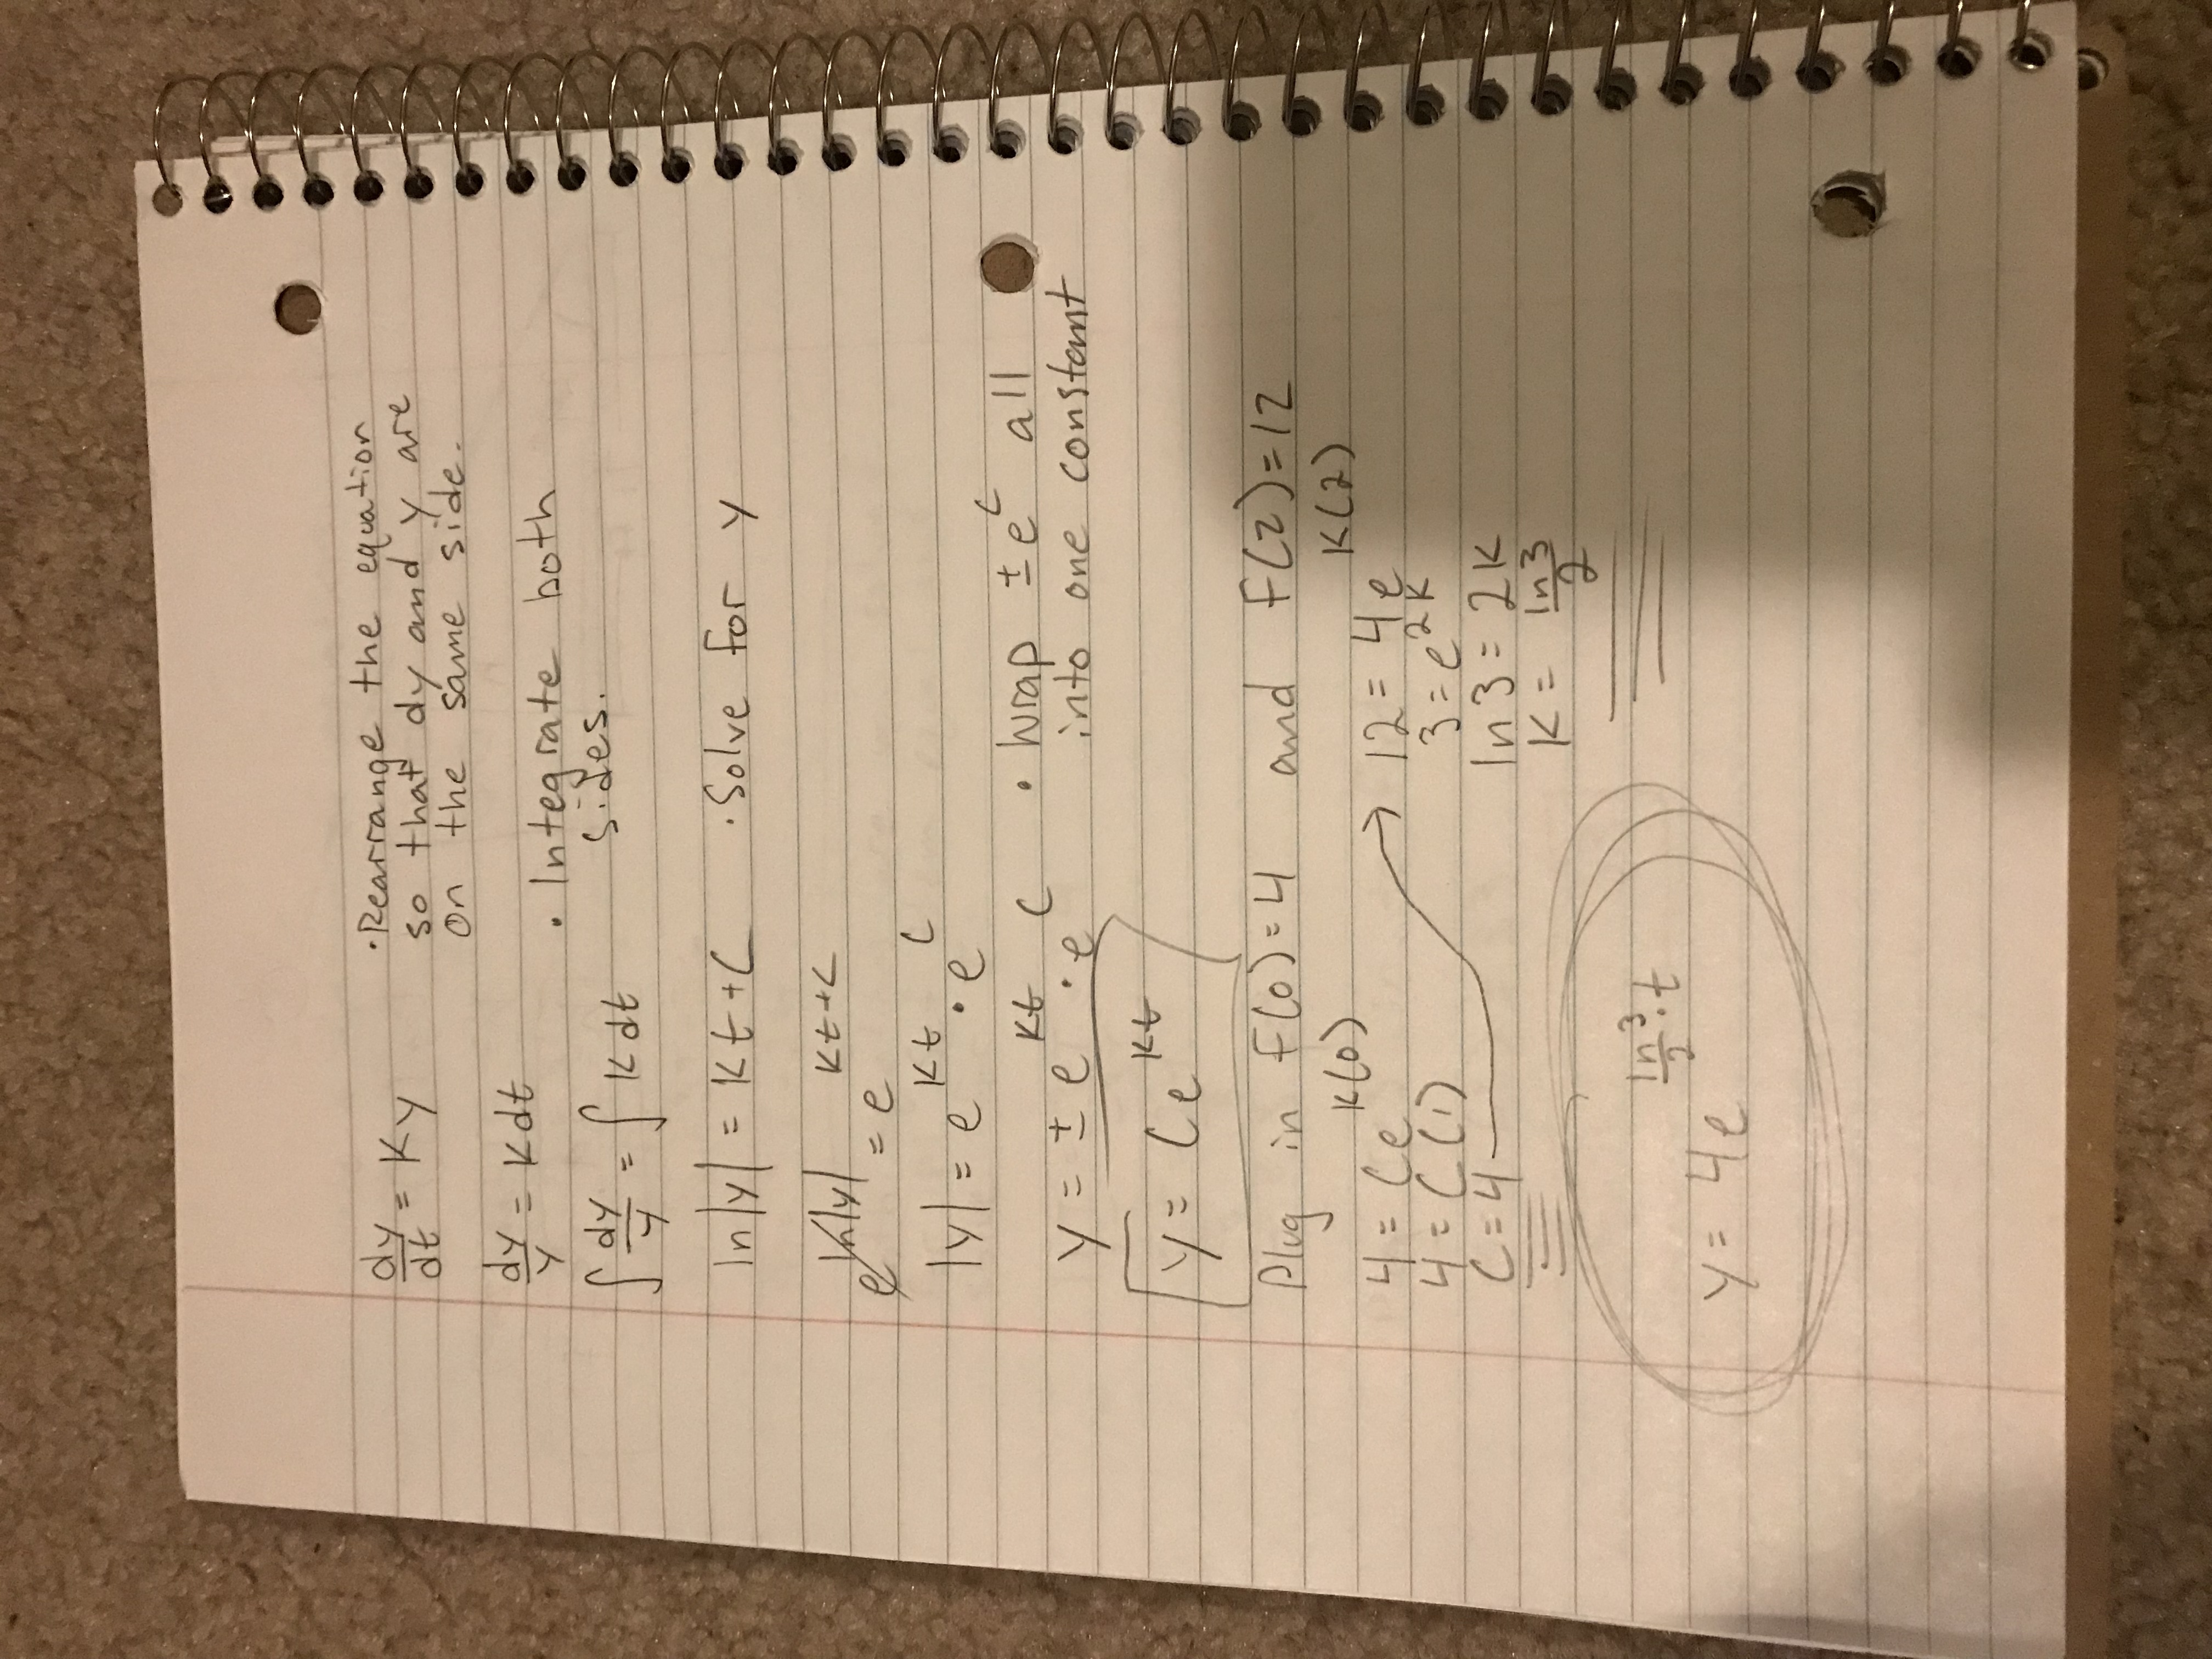 dy/dt = Ky · Rearrange the equation
so that dy and y are
on the same side.
dy/y = Kdt
· Integrate both
sides.
∫ dy/y = ∫ Kdt
ln|y| = Kt + C · Solve for y
e^ln|y| = e^Kt+C
|y| = e^Kt · e^C
y = ± e^Kt · e^C · Wrap ± e^C all
into one constant
y = Ce^Kt
Plug in F(0)=4 and F(2)=12
4 = Ce^K(0) → 12 = 4e^K(2)
4 = C(1) 3 = e^2K
C = 4 ln3 = 2K
K = ln3/2
y = 4e^ln3/2·t